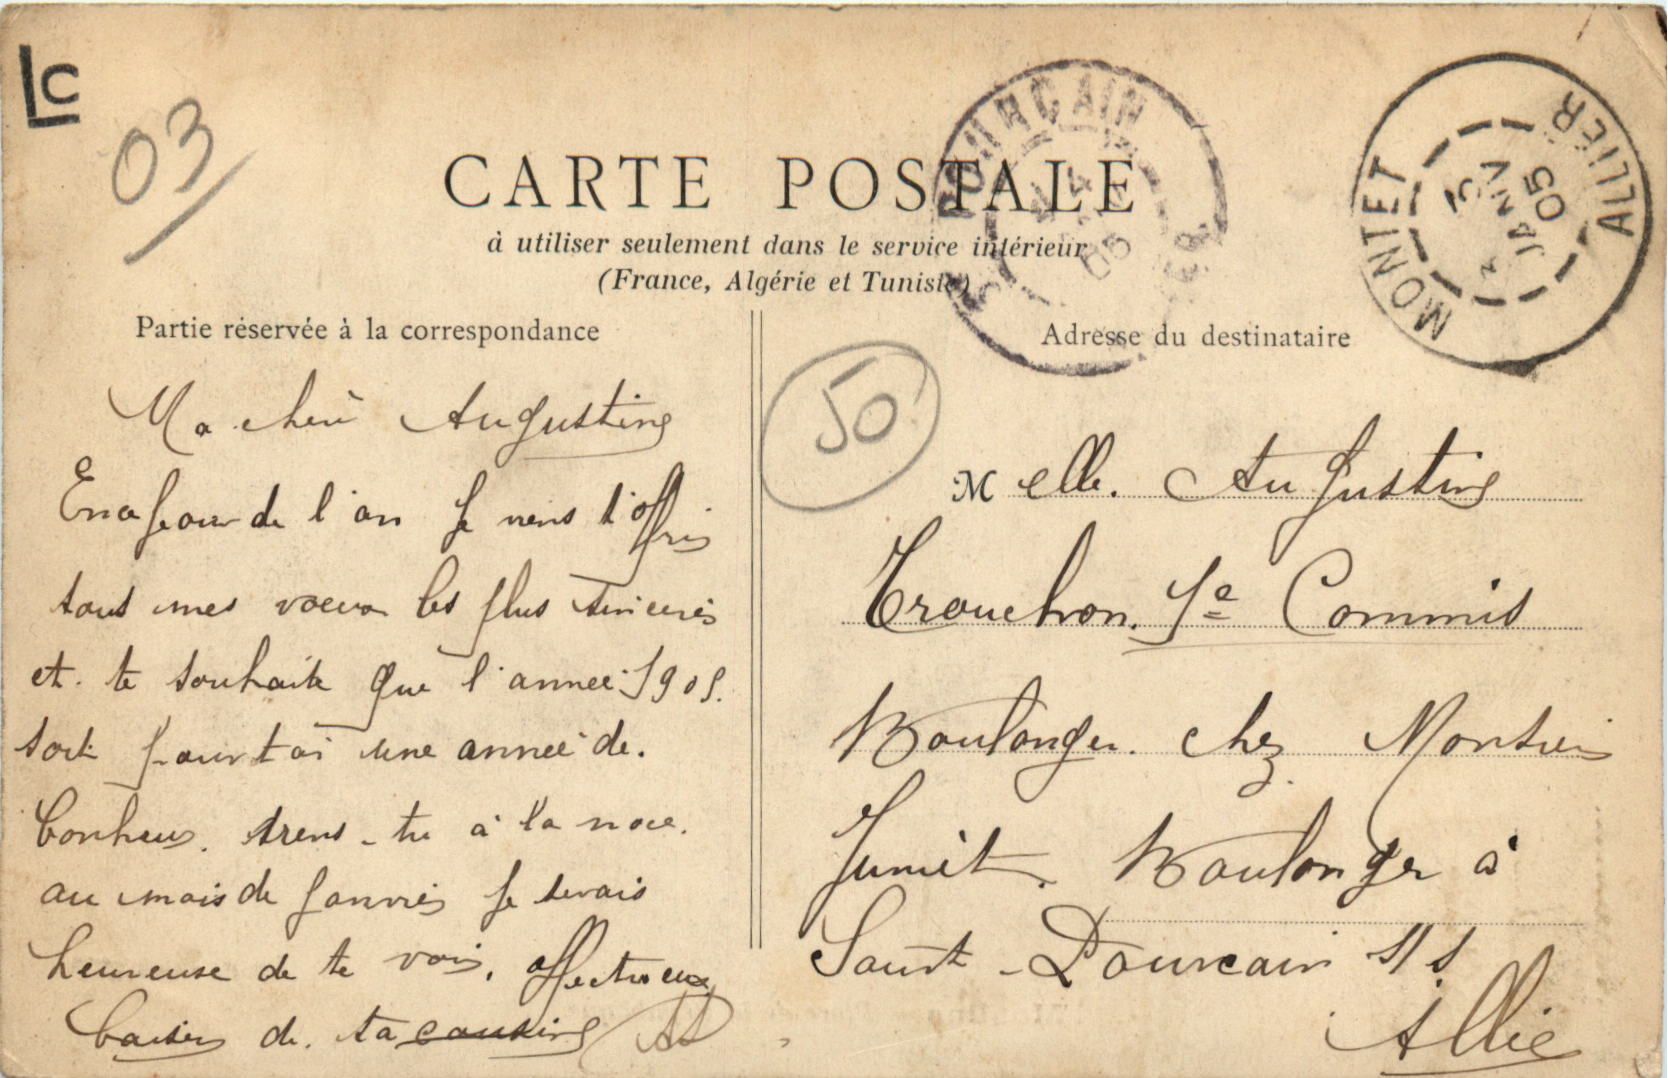 LC
03
CARTE POSTALE
à utiliser seulement dans le service intérieur
(France, Algérie et Tunisie)
POURÇAIN
05
MONTET ALLIER
3
JANV
05
Partie réservée à la correspondance
Adresse du destinataire
50
Ma chère Augustine
de l'an je viens t'offrir
tous mes voeux les plus sincères
et te souhaite que l'année 1905.
soit pour toi une année de.
bonheur. viens-tu à la noce.
au mois de janvier je serais
heureuse de te voir, affectueux
baiser de. ta cousine AD
Melle. Augustine
Trouchon. 1e Commis
Boulanger. chez Monsieur
Jumet. Boulanger à
Saint-Pourcain s/s
Allier